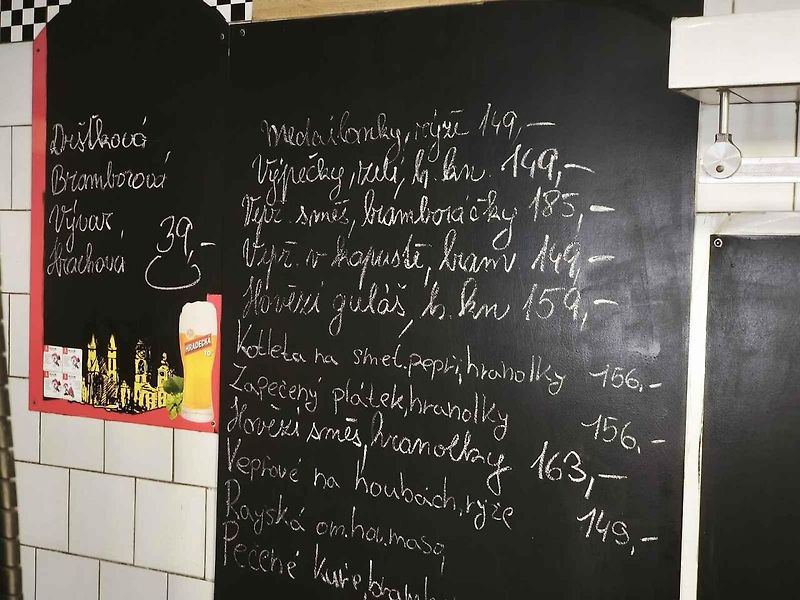 Dršťková
Bramborová
Vývar
Hrachová 39,-
HRADECKÁ
Medailonky, rýže 149,-
Výpečky, zelí, h. kn 149,-
Vepř. směs, bramboráčky 185,-
Vepř. v kapustě, bram 149,-
Hovězí guláš, h. kn 159,-
Kotleta na smet. pepři, hranolky 156,-
Zapečený plátek, hranolky 156,-
Hovězí směs, hranolky 163,-
Vepřové na houbách, rýže 149,-
Rajská om. hov. masa
Pečené kuře,